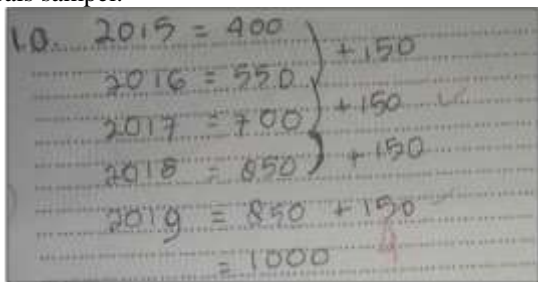 1.a. 2015 = 400
+150
2016 = 550
+150
2017 = 700
+150
2018 = 850
2019 = 850 + 150
= 1000
4